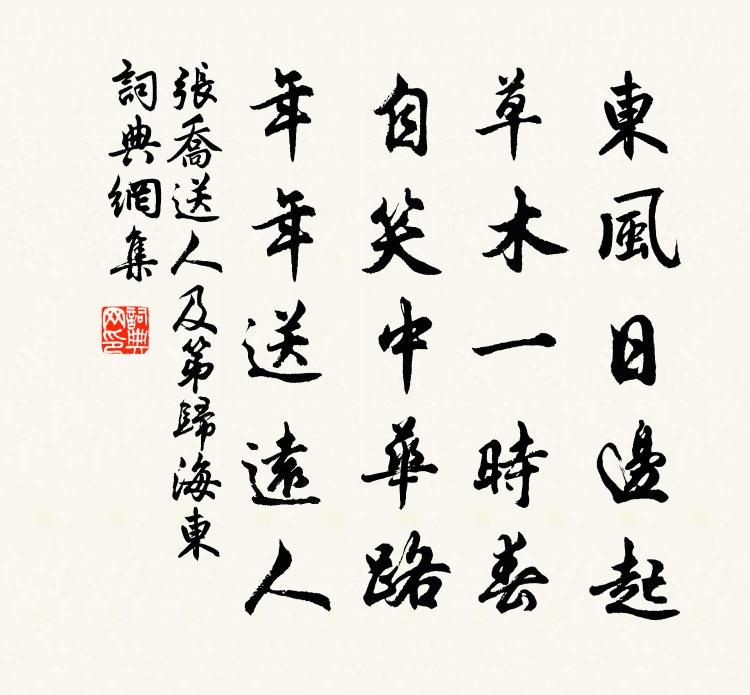 東風日邊起
草木一時春
自笑中華路
年年送遠人
張喬送人及第歸海東
詞典網集
詞典
网印